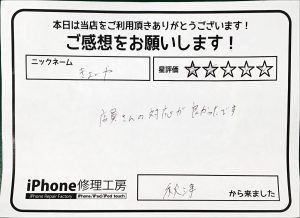 本日は当店をご利用頂きありがとうございます!
ご感想をお願いします!
ニックネーム
星評価 ☆☆☆☆☆
店員さんの対応が良かったです
iPhone修理工房
iPhone Repair Factory iPhone/iPad/iPod touch
から来ました